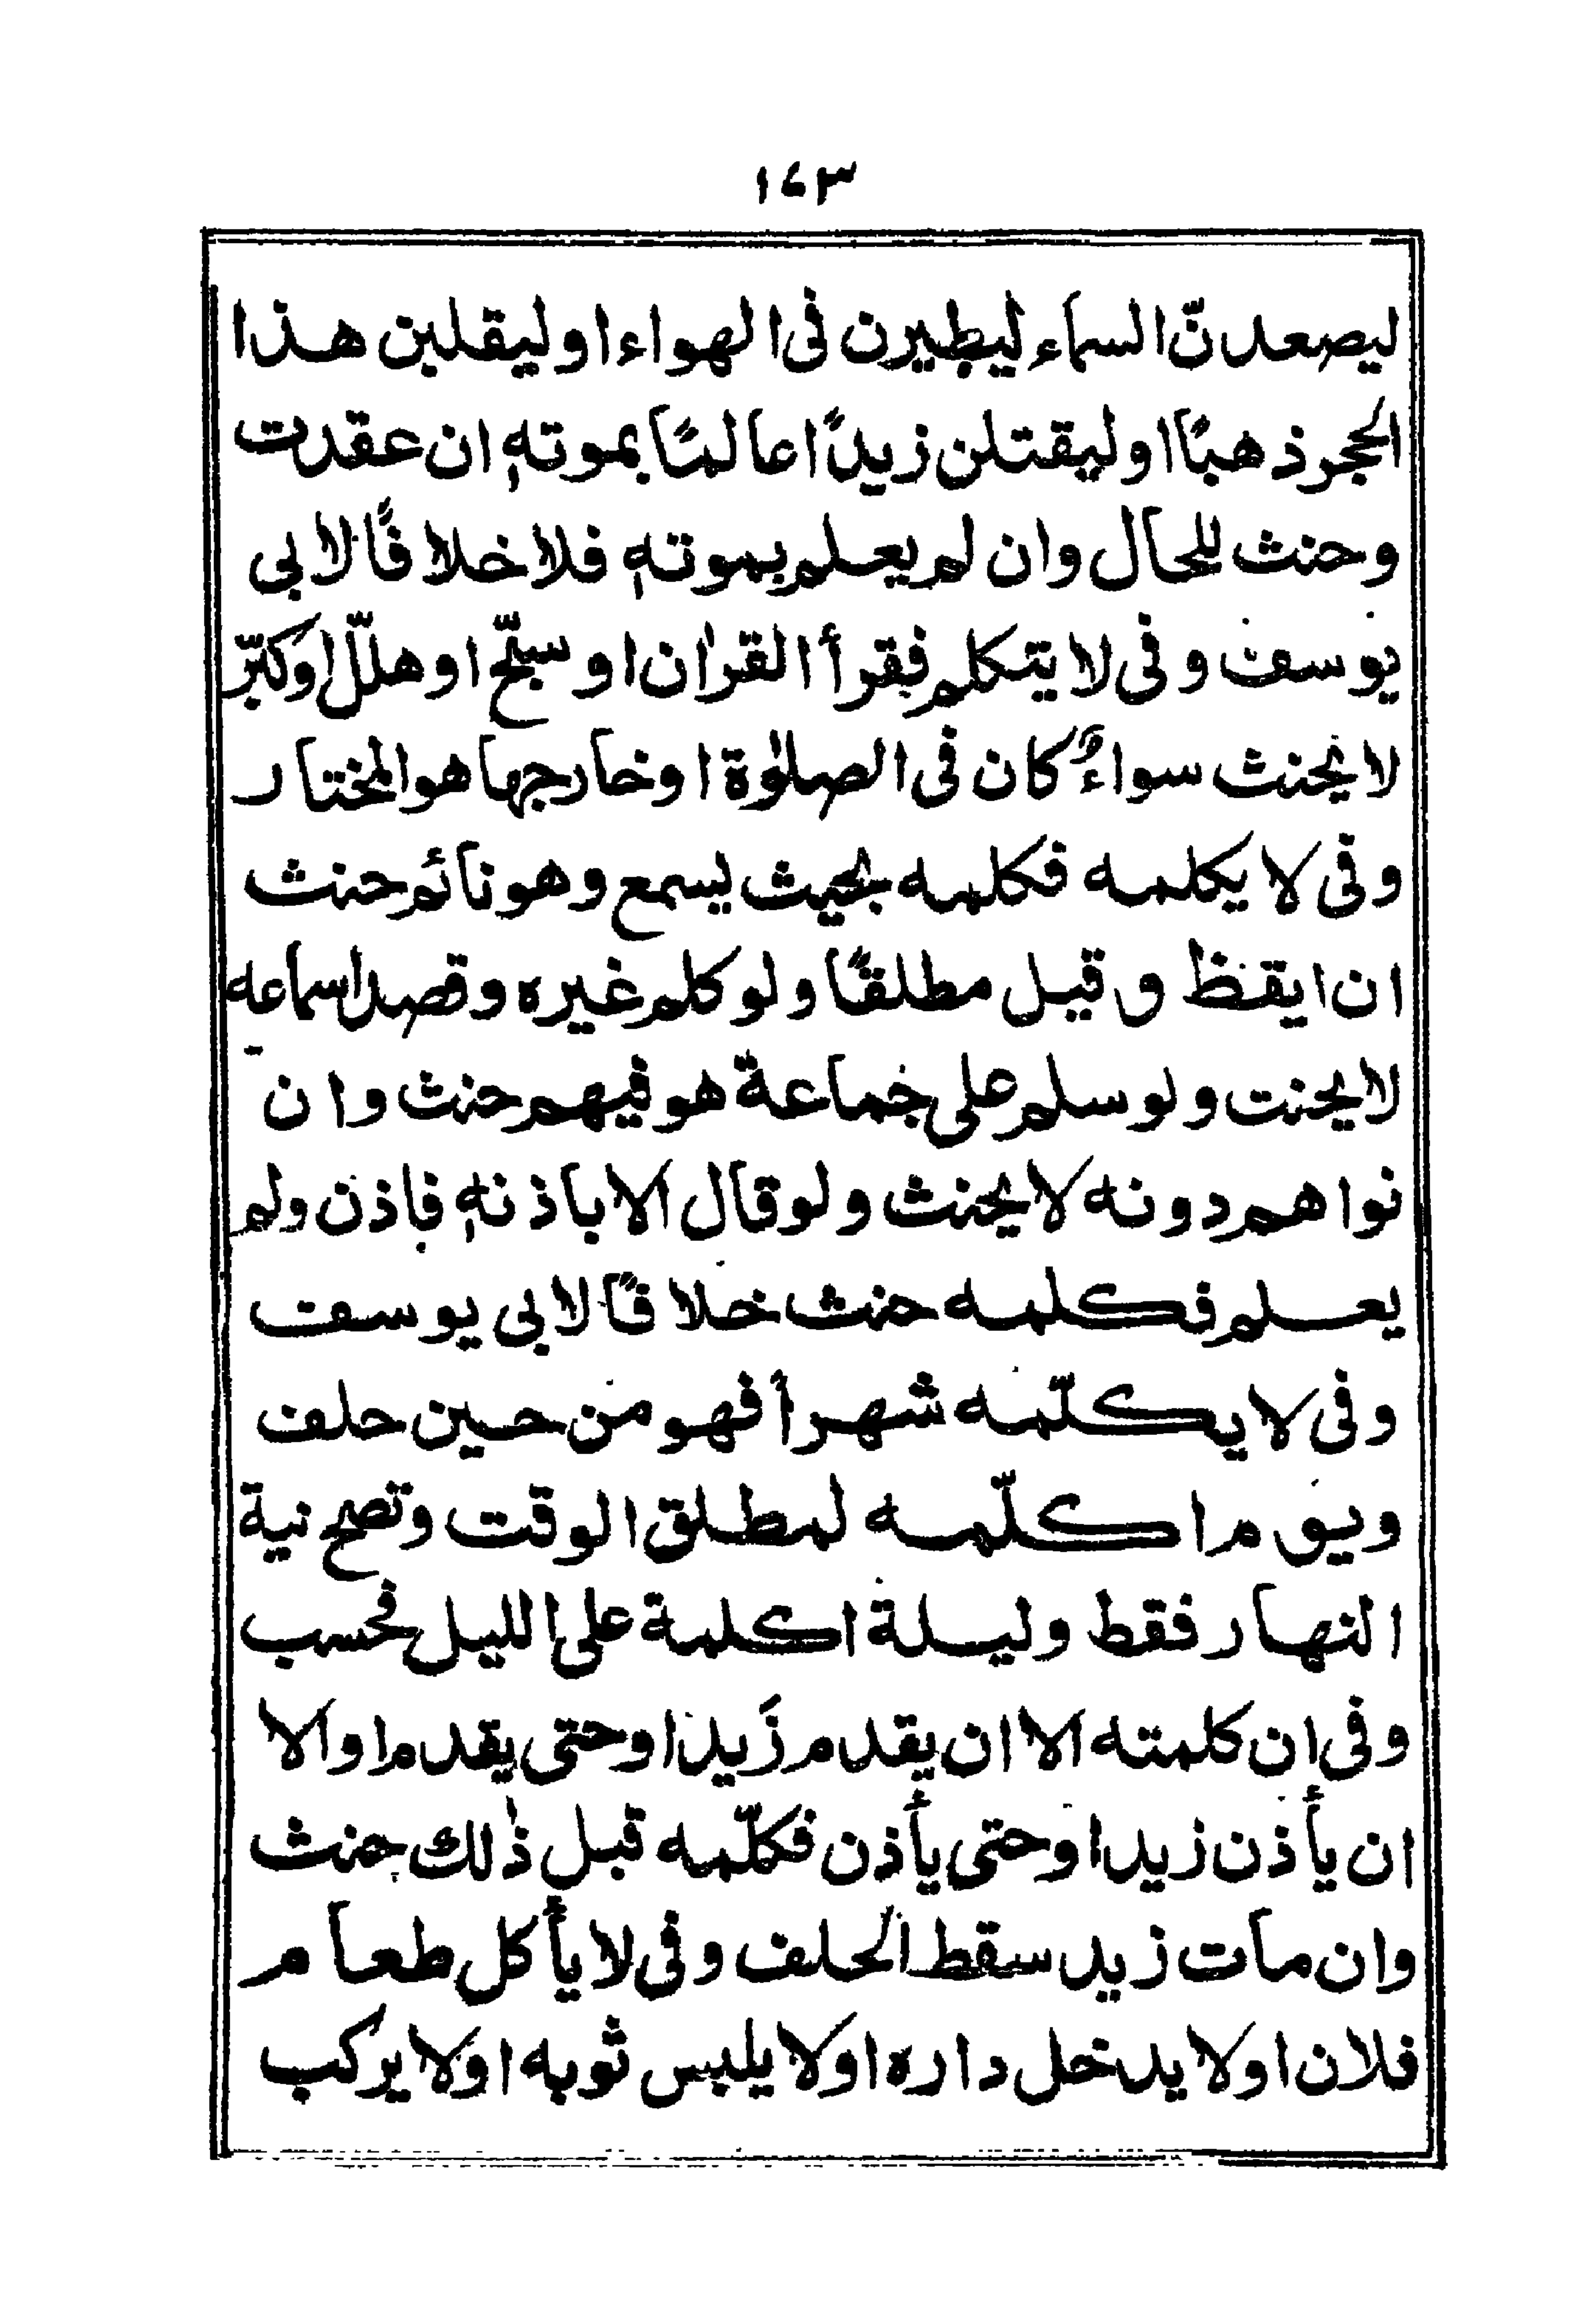 ١٤٣
ليصعدنّ السماء ليطيرن فى الهواء او ليقلبن هذا
الحجر ذهبًا او ليقتلن زيدًا عالمًا بموتهٖ ان عقدت
وحنث للحال وان لم يعلم بموتهٖ فلا خلافًا لابى
يوسف وفى لا يتكلم فقرأ القراٰن او سبّح او هلّل او كبّر
لا يحنث سواءٌ كان فى الصلوٰة او خارجها هو المختار
وفى لا يكلمه فكلمه بحيث يسمع وهو نائم حنث
ان ايقظ و قيل مطلقًا ولو كلم غيره وقصد اسماعه
لا يحنت ولو سلم على جماعة هو فيهم حنث وان
نواهم دونه لا يحنث ولو قال الا باذنهٖ فاذن ولم
يعلم فكلمه حنث خلافًا لابى يوسف
وفى لا يكلّمه شهرًا فهو من حين حلف
ويوم اكلّمه لمطلق الوقت وتصح نية
النهار فقط وليلة اكلمة على الليل فحسب
وفى ان كلمته الا ان يقدم زيد او حتى يقدم او الا
ان يأذن زيد او حتى يأذن فكلّمه قبل ذٰلك حنث
وان مات زيد سقط الحلف وفى لا يأكل طعام
فلان او لا يدخل داره او لا يلبس ثوبه او لا يركب